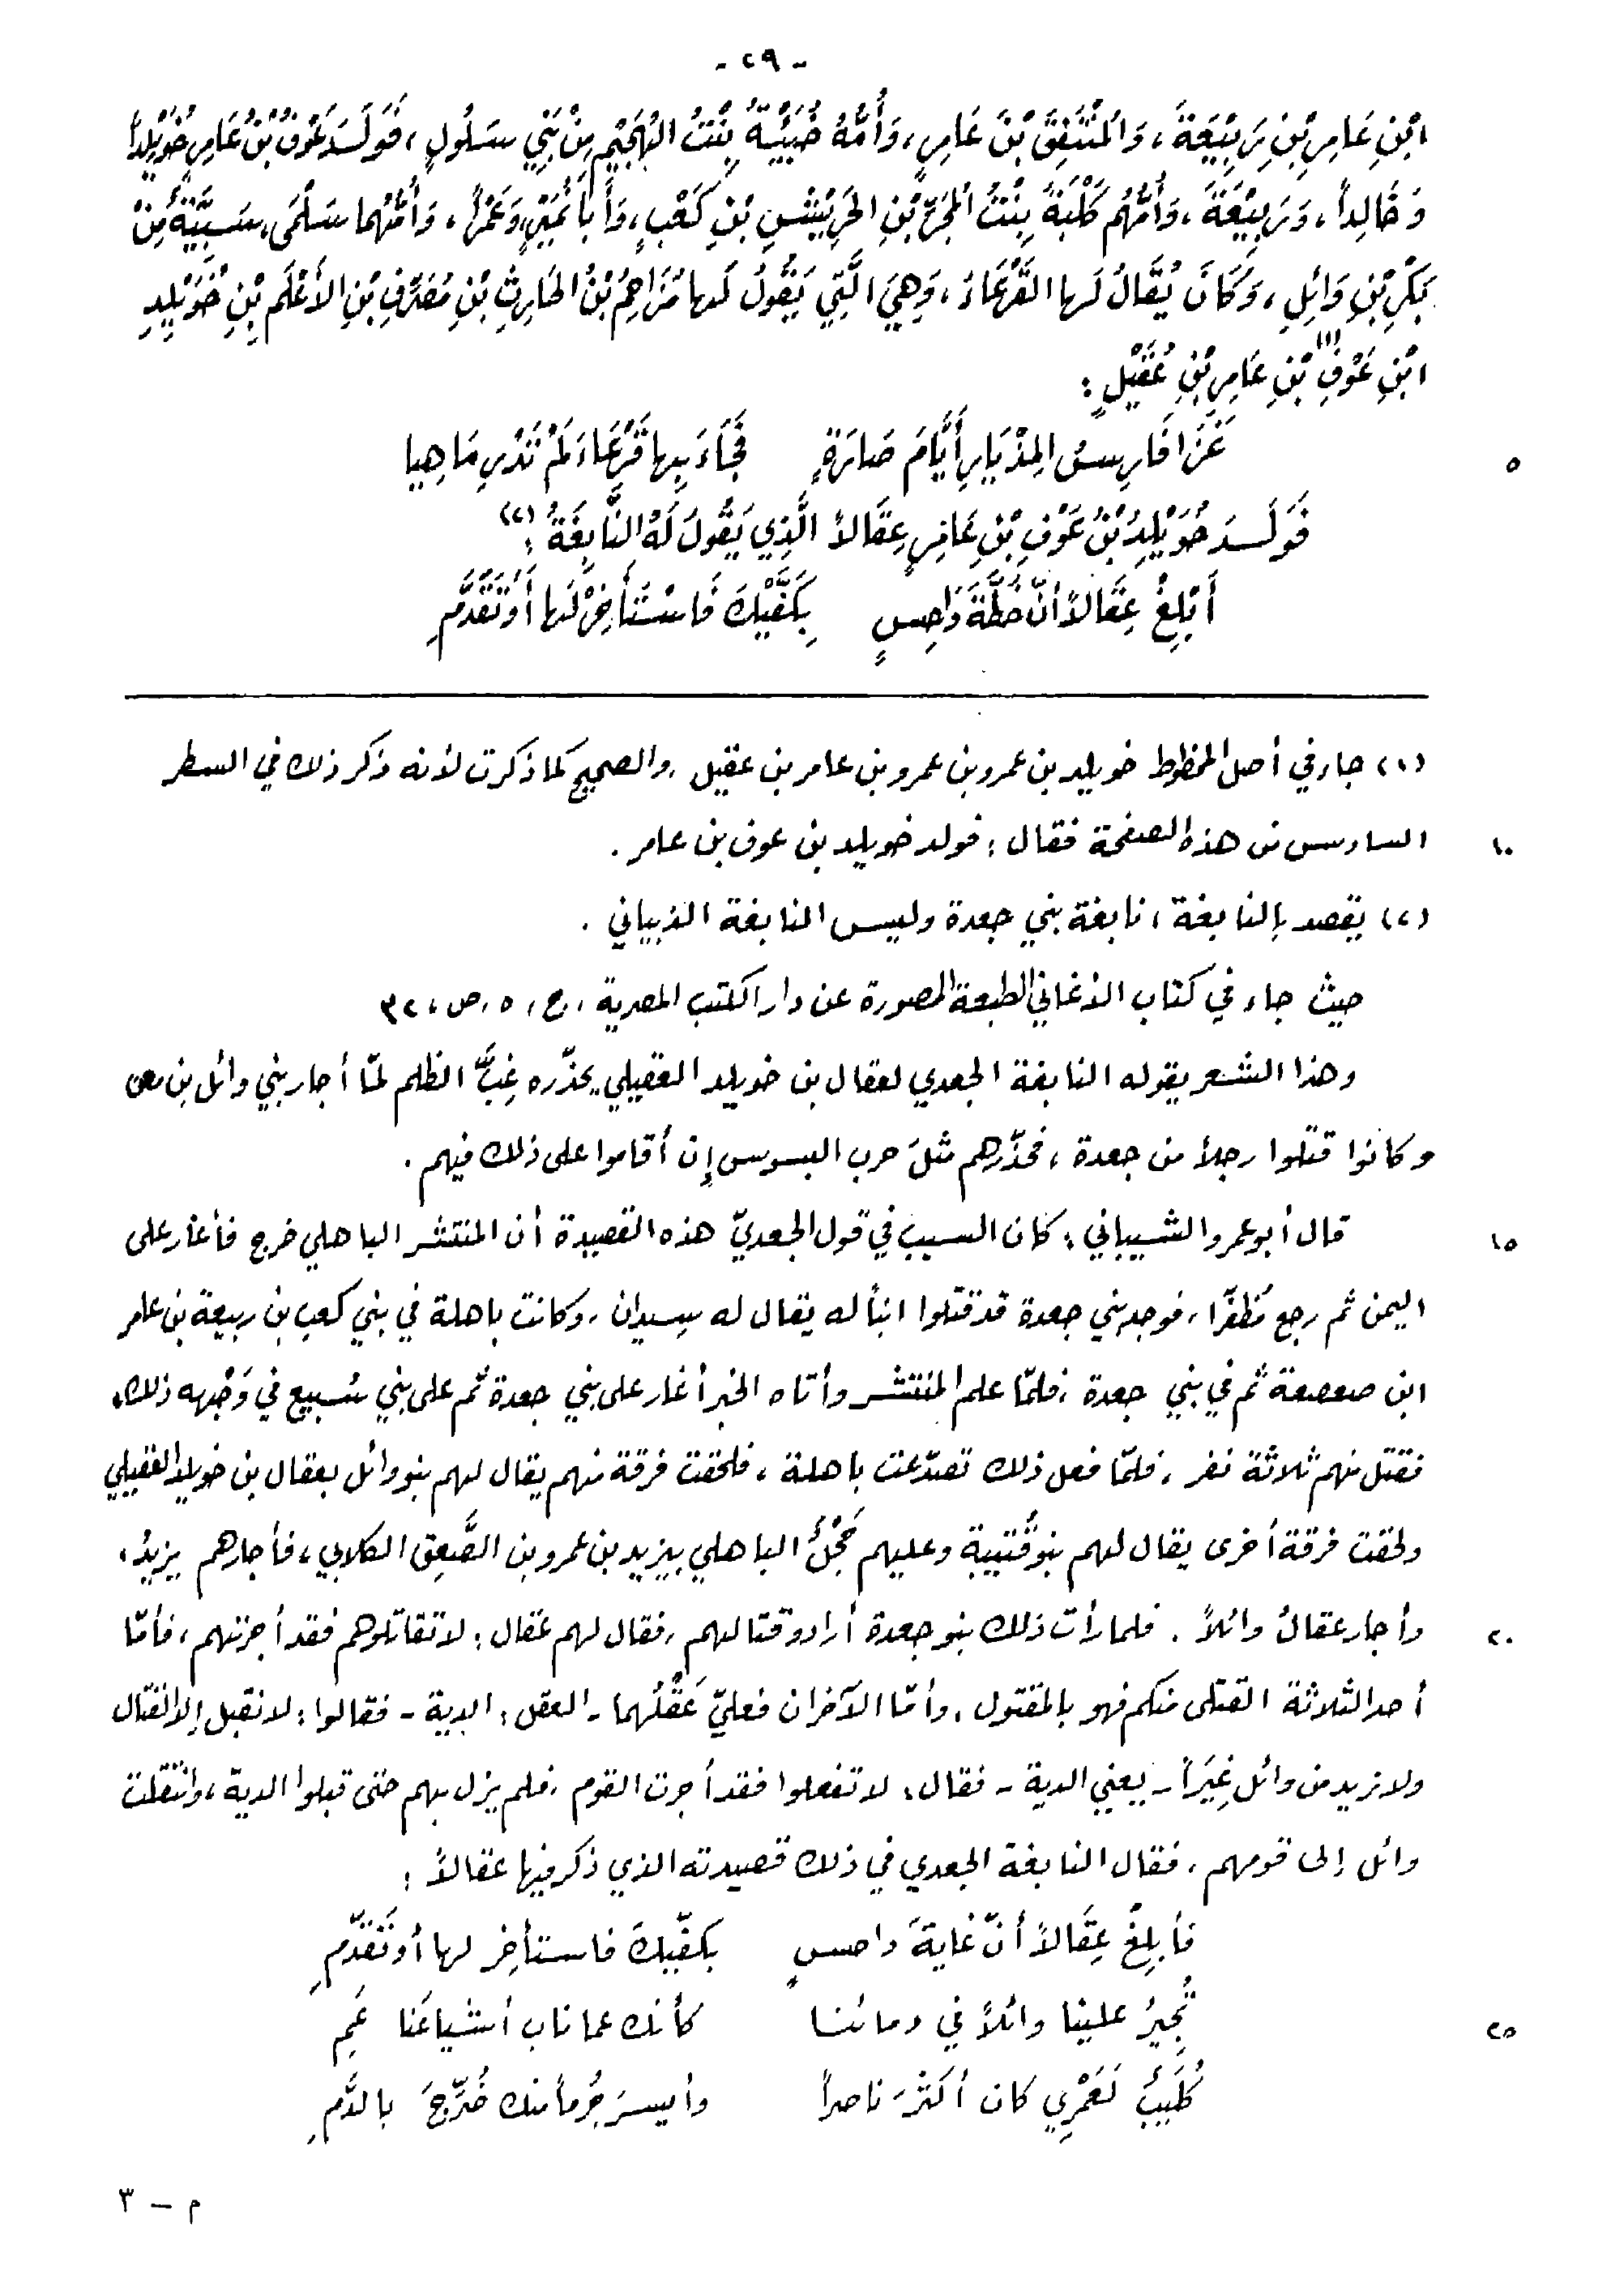 - ٢٩ -
ابْنِ عَامِرِ بْنِ رَبِيْعَةَ، وَالمُنْتَفِقَ بْنَ عَامِرٍ، وَأُمُّهُ خُبَيْئَةُ بِنْتُ الهُجَيْمِ مِنْ بَنِي سَلُولٍ، فَوَلَدَ عَوْفُ بْنُ عَامِرٍ خُوَيْلِداً
وَخَالِداً، وَرَبِيْعَةَ، وَأُمُّهُم كَلْبَةُ بِنْتُ الجَرَّ بْنِ الحَرِيْشِ بْنِ كَعْبٍ، وَأَبَا نُمَيْرٍ وَعَمْراً، وَأُمُّهُما سَلْمَى، سَبِيَّةٌ مِنْ
بَكْرِ بْنِ وَائِلٍ، وَكَانَ يُقَالُ لَها القَرْعَاءُ، وَهِيَ الَّتِي يَقُولُ لَها مُزَاحِمُ بْنُ الحَارِثِ بْنِ مُصَرِّفِ بْنِ الأَعْلَمِ بْنِ خُوَيْلِدِ
ابْنِ عَوْفِ (١) بْنِ عَامِرِ بْنِ عُقَيْلٍ :
٥ غَزَا فَارِسُ المِذْيَارِ أَيَّامَ صَارَةٍ فَجَاءَ بِها قَرْعَاءَ لَمْ تَدْرِ مَا هِيا
فَوَلَدَ خُوَيْلِدُ بْنُ عَوْفِ بْنِ عَامِرٍ عِقَالاً الَّذِي يَقُولَ لَهُ النَّابِغَةُ (٢) :
أَبْلِغْ عِقَالاً أنّ خُطَّةَ دَاحِسٍ بِكَفَّيْكَ فَاسْتَأْخِرْ لَها أَوْ تَقَدَّمِ
(١) جاء في أصل المخطوط خويلد بن عمرو بن عمرو بن عامر بن عقيل، والصحيح كما ذكرت لأنه ذكر ذلك في السطر
١٠ السادس من هذه الصفحة فقال : فولد خويلد بن عوف بن عامر .
(٢) يقصد بالنابغة، نابغة بني جعدة وليس النابغة الذبياني .
حيث جاء في كتاب الأغاني الطبعة المصورة عن دار الكتب المصرية، ج، ٥، ص، ٣٢
وهذا الشعر يقوله النابغة الجعدي لعقال بن خويلد العقيلي يحذّره غِبَّ الظلم لمّا أجار بني وائل بن معن
وكانوا قتلوا رجلاً من جعدة، فحذّرهم مثلَ حرب البسوس إن أقاموا على ذلك فيهم .
١٥ قال أبو عمرو الشيباني : كان السبب في قول الجعديّ هذه القصيدة أن المنتشر الباهلي خرج فأغار على
اليمن ثم رجع مُظفّرا، فوجد بني جعدة قد قتلوا ابناً له يقال له سيدان، وكانت باهلة في بني كعب بن ربيعة بن عامر
ابن صعصعة ثم في بني جعدة، فلمّا علم المنتشر وأتاه الخبر أغار على بني جعدة ثم على بني سُبيع في وَجْهه ذلك،
فقتل منهم ثلاثة نفر، فلمّا فعل ذلك تصدّعت باهلة، فلحقت فرقة منهم يقال لهم بنو وائل بعقال بن خويلد العقيلي
ولحقت فرقة أخرى يقال لهم بنو قُتيبة وعليهم حَجْلٌ الباهلي بيزيد بن عمرو بن الصَّعِق الكلابي، فأجارهم يزيدُ،
٢٠ وأجار عقالُ وائلاً . فلما رأت ذلك بنو جعدة أرادو قتالهم، فقال لهم عقال : لا تقاتلوهم فقد أجرتهم، فأمّا
أحد الثلاثة القتلى منكم فهو بالمقتول، وأمّا الآخران فعليّ عَقْلُهما - العقل : الدية - فقالوا : لا نقبل إلا القتال
ولا نريد من وائل غِيَراً - يعني الدية - فقال : لا تفعلوا فقد أجرت القوم، فلم يزل بهم حتى قبلوا الدية، وانتقلت
وائل إلى قومهم، فقال النابغة الجعدي في ذلك قصيدته الذي ذكر فيها عقالاً :
فأبلِغْ عِقَالاً أنّ غايةَ داحسٍ بكفّيكَ فاستأخِر لها أو تَقَدَّمِ
٢٥ تُجِيرُ علينا وائلاً في دمائنا كأنك عما ناب أشياعَنا عَمِ
كُلَيبٌ لَعَمْرِي كان أكثرَ ناصراً وأيسرَ جُرماً منك ضُرِّجَ بالدَّمِ
م - ٣